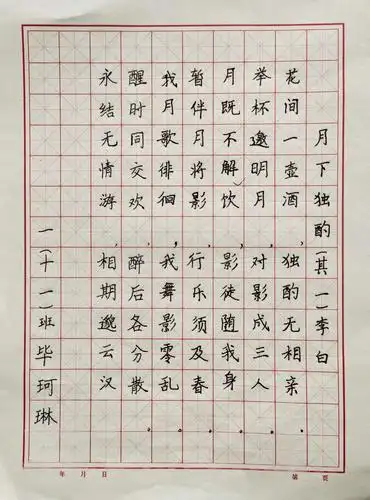 月下独酌（其一）李白
花间一壶酒，独酌无相亲。
举杯邀明月，对影成三人。
月既不解饮，影徒随我身。
暂伴月将影，行乐须及春。
我月歌徘徊，我舞影零乱。
醒时同交欢，醉后各分散。
永结无情游，相期邈云汉。
一（十一）班毕珂琳
年 月 日 第 页